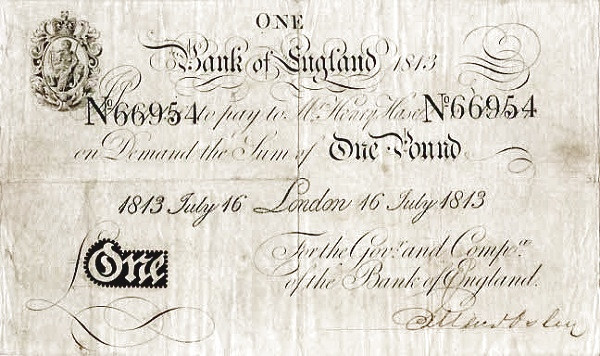 ONE
Bank of England 1813
No 66954 to pay to Mr. Henry Hase No 66954
on Demand the Sum of One Pound
1813 July 16 London 16 July 1813
For the Govr. and Compa. of the Bank of England.
One